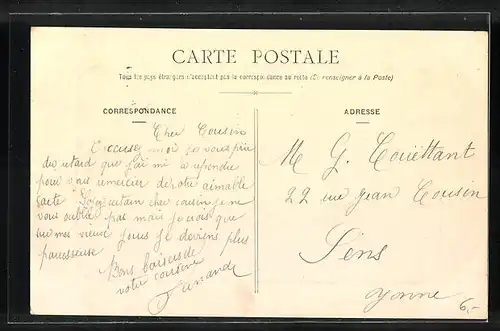 CARTE POSTALE
Tous les pays étrangers n'acceptent pas la correspondance au recto (Se renseigner à la Poste)
CORRESPONDANCE
Cher Cousin
Excusez moi je vous prie
du retard que j'ai mi a repondre
pour vous remercier de votre aimable
carte cher cousin je ne
vous oublie pas mais je crois que
sur mes vieux jours je deviens plus
paresseuse
Bons baisers de
votre cousine
Fernande
ADRESSE
M G. Couëttant
22 rue Jean Cousin
Sens
Yonne
6,-